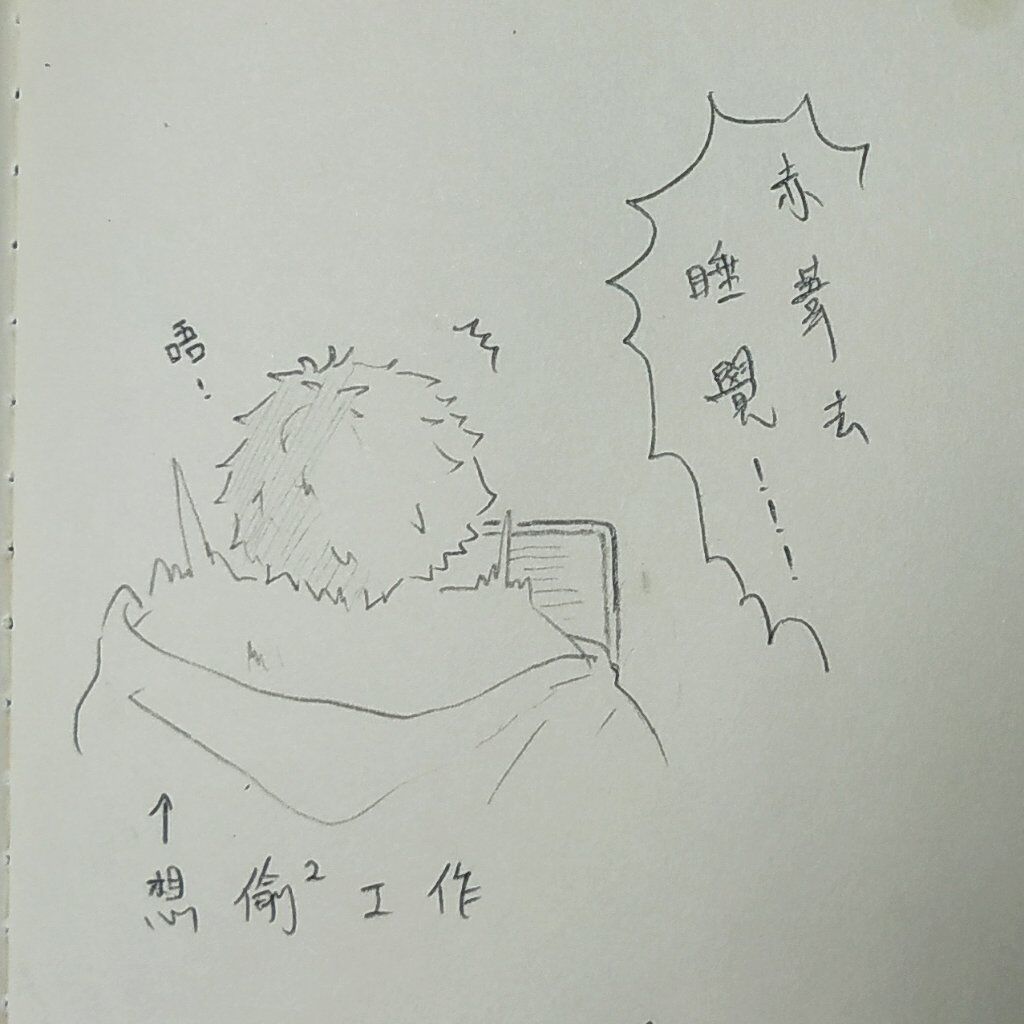 赤葦去
睡覺!!!
唔!
↑
想偷²工作